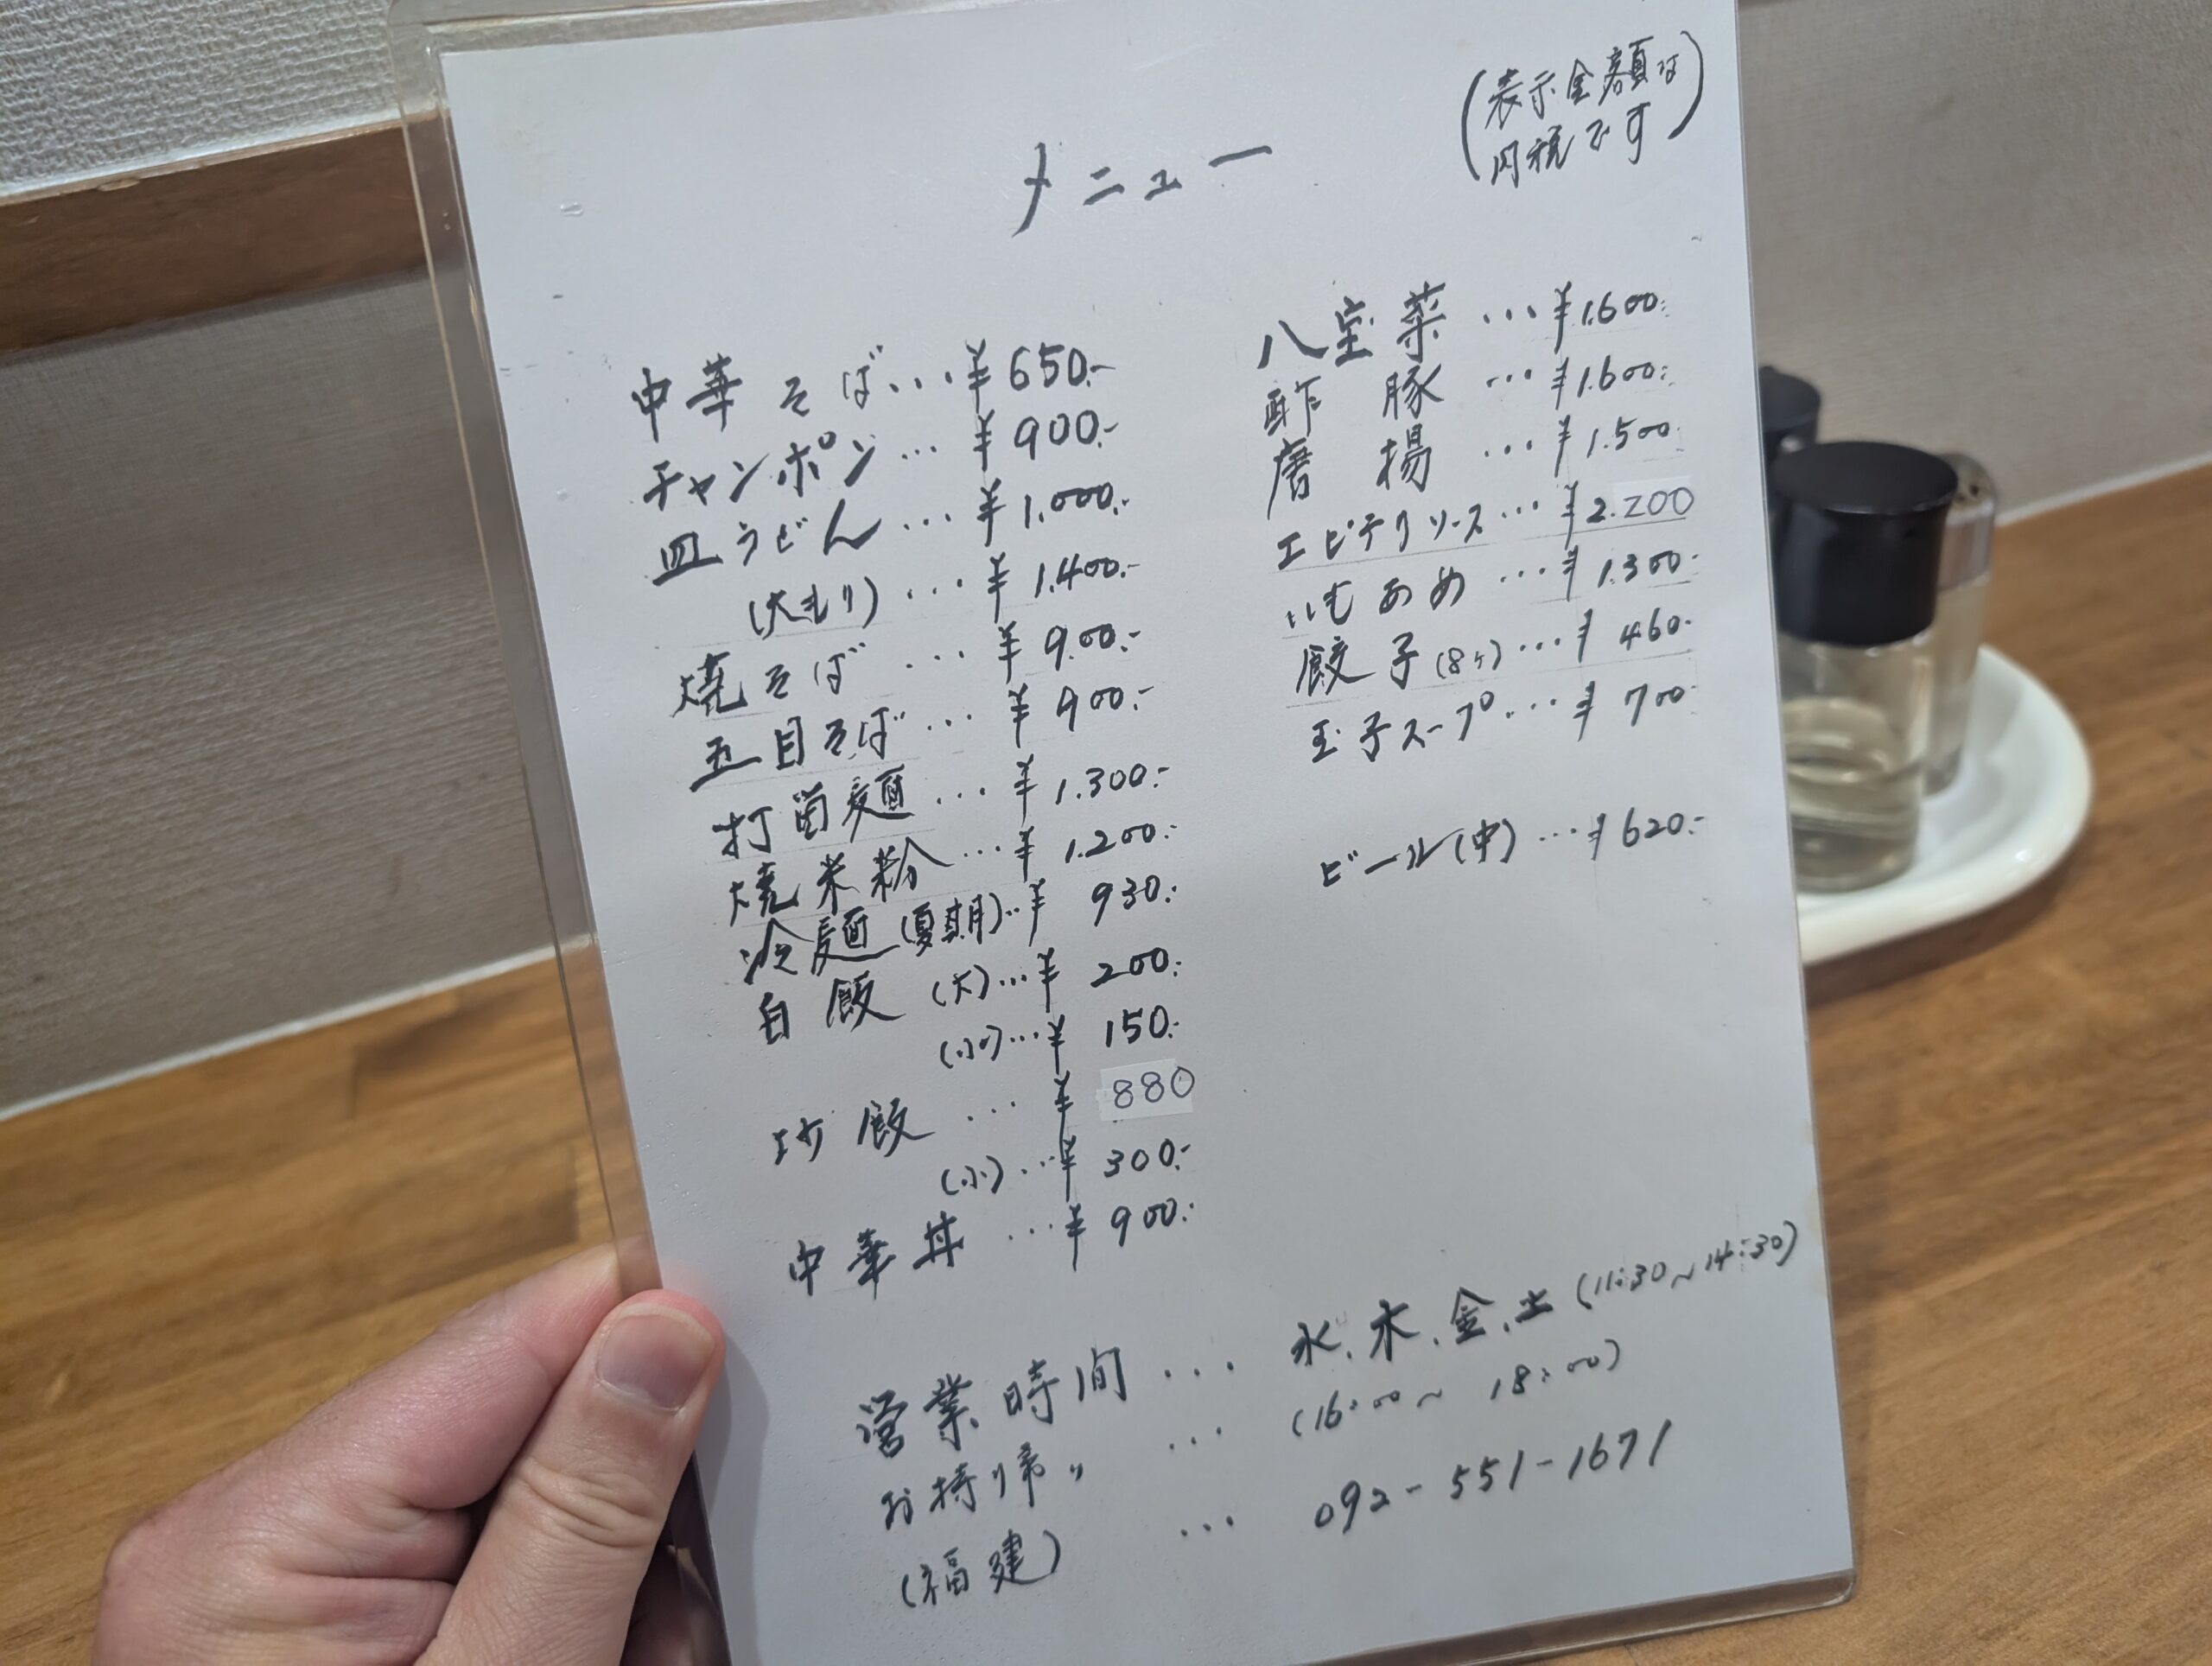 メニュー
(表示金額は
内税です)
中華そば…¥650.-
チャンポン…¥900.-
皿うどん…¥1.000.-
(大もり)…¥1.400.-
焼そば…¥900.-
五目そば…¥900.-
打歯麺…¥1.300.-
焼米粉…¥1.200.-
冷麺(夏期)…¥930.-
白飯(大)…¥200.-
(小)…¥150.-
炒飯…¥880
(小)…¥300.-
中華丼…¥900.-
八宝菜…¥1.600.-
酢豚…¥1.600.-
唐揚…¥1.500
エビチリソース…¥2.200
いもあめ…¥1.300-
餃子(8ヶ)…¥460-
玉子スープ…¥700-
ビール(中)…¥620.-
営業時間…水、木、金、土(11:30~14:30)
お持り帰り…(16:00~18:00)
(福建)…092-551-1671